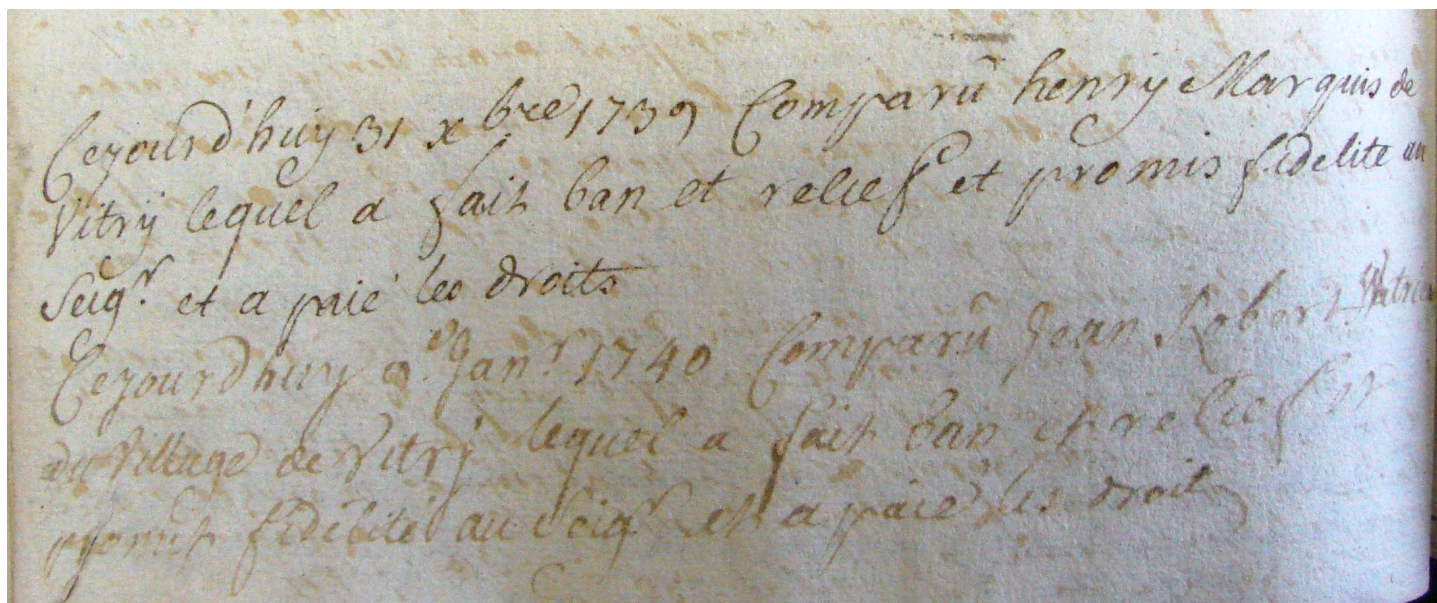 Cejourd'huy 31 xbre 1739 Comparu henry Marquis de
Vitry lequel a fait ban et relief et promis fidelite au
Seigr et a paié les droits
Cejourdhuy 9e Janr 1740 Comparu Jean Robert
du village de Vitry lequel a fait ban et relief et
promit fidelité au Seigr et a paié les droit